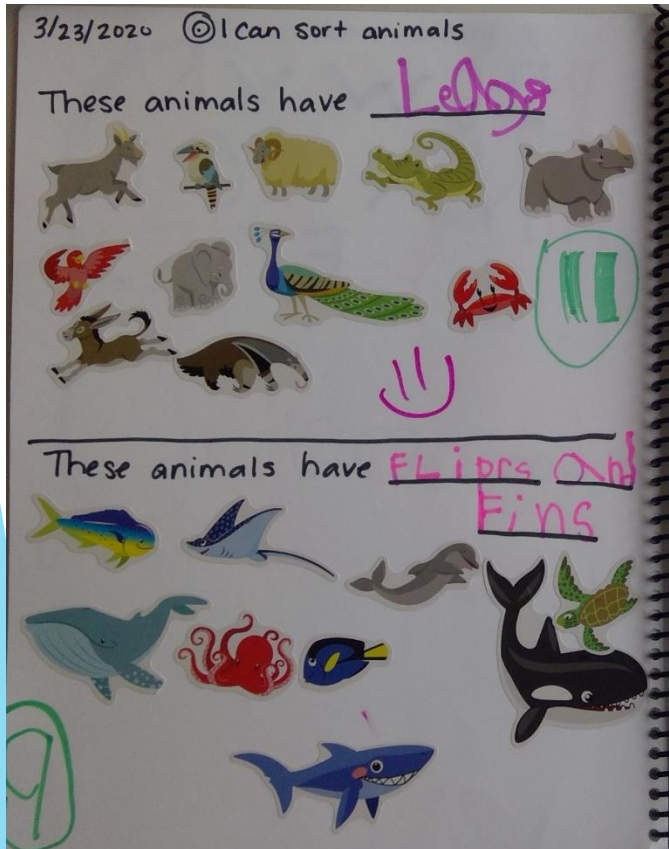 3/23/2020 I can sort animals
These animals have Legs
11
These animals have FLiprs and
Fins
9